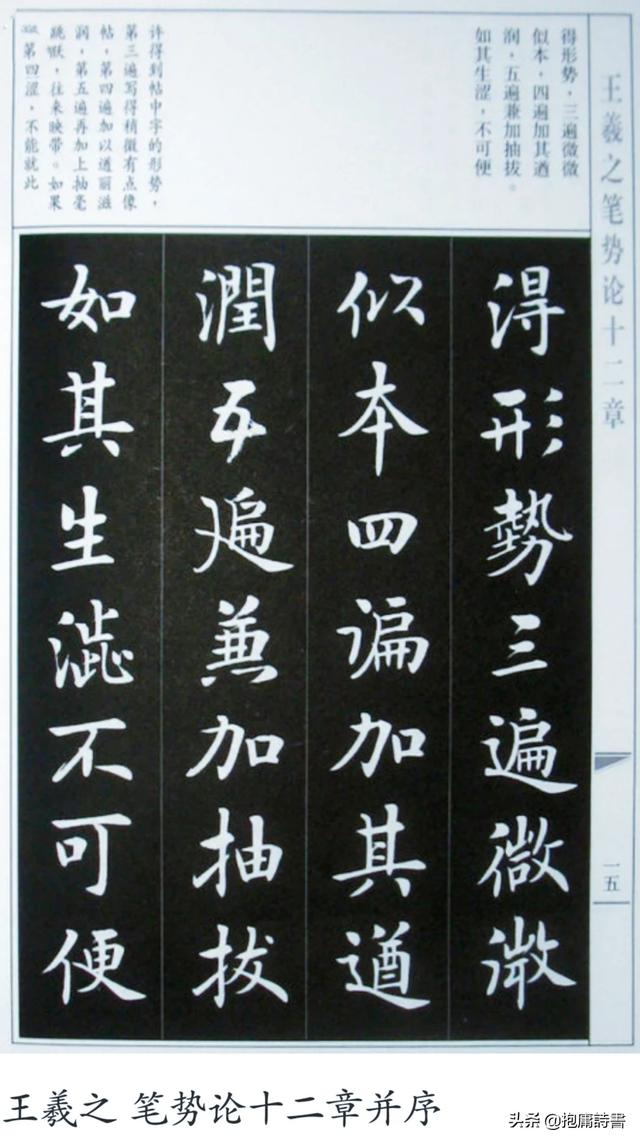 王羲之笔势论十二章
一五
得形势，三遍微微
似本，四遍加其遒
润，五遍兼加抽拔。
如其生涩，不可便
许得到帖中字的形势，
第三遍写得稍微有点像
帖，第四遍加以遒丽滋
润，第五遍再加上抽毫
跳，往来映带。如果
第四涩，不能就此
得形勢三遍微微
似本四遍加其遒
潤五遍兼加抽拔
如其生澁不可便
王羲之 笔势论十二章并序
头条 @抱庸詩書